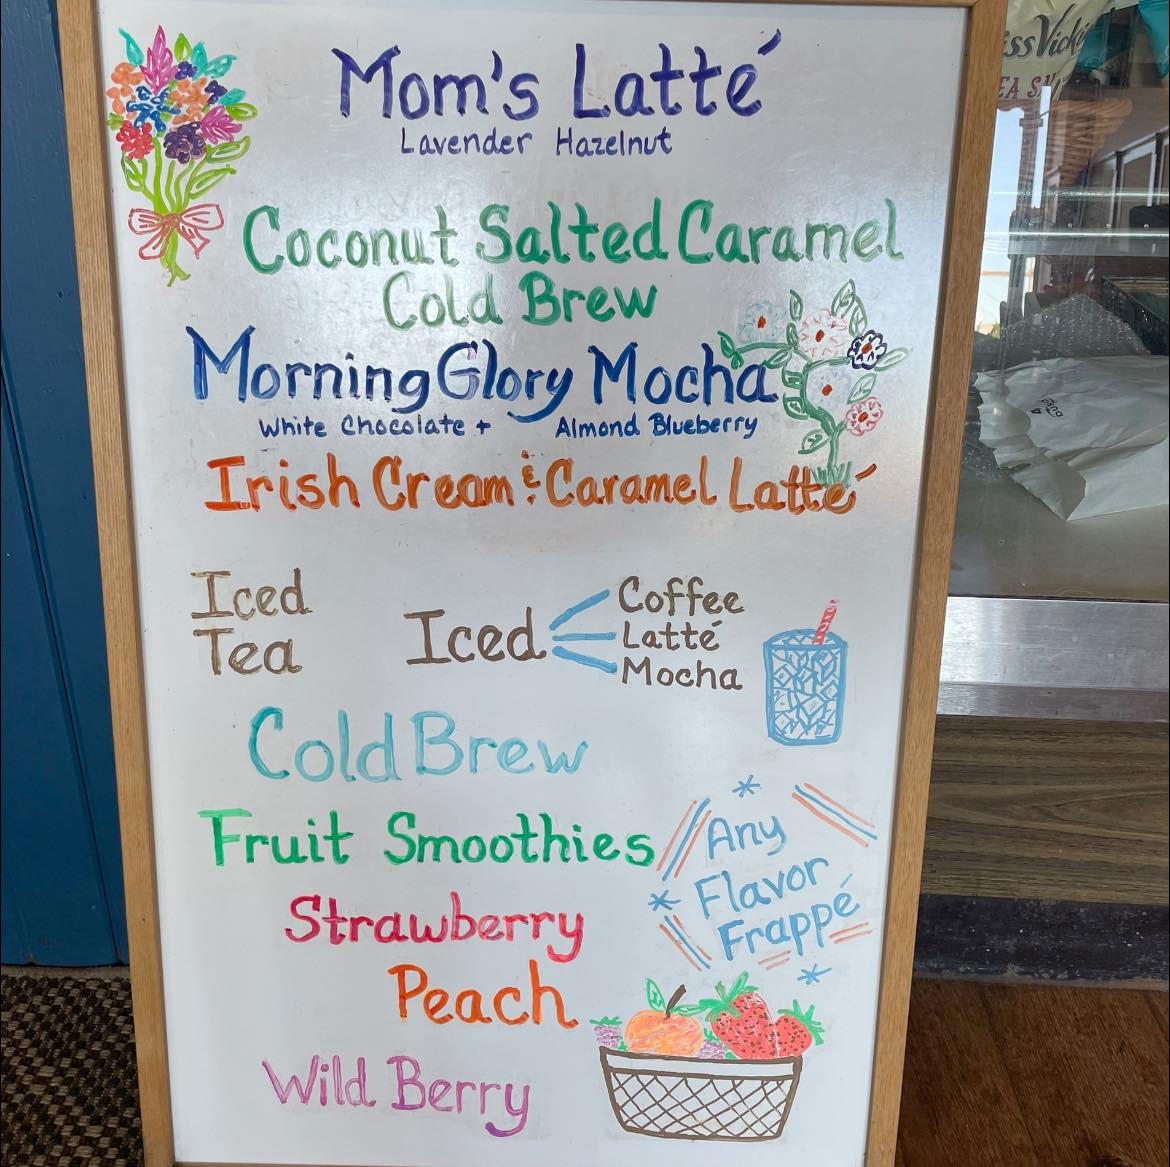 Mom's Latté
Lavender Hazelnut
Coconut Salted Caramel
Cold Brew
Morning Glory Mocha
White Chocolate + Almond Blueberry
Irish Cream & Caramel Latté
Iced
Tea
Iced
Coffee
Latté
Mocha
Cold Brew
Fruit Smoothies
Strawberry
Peach
Wild Berry
Any
Flavor
Frappé